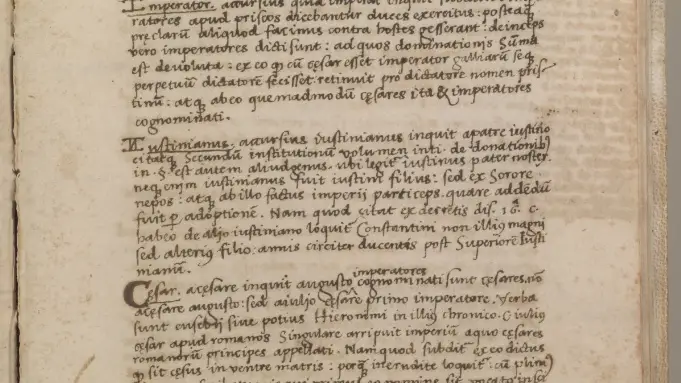 Imperator. accursius quia imperat inquit
ratores apud priscos dicebantur duces exercitus: postea q̄
pręclarū aliquod facinus contra hostes gesserant: deinceps
vero imperatores dicti sunt: ad quos dominationis Sūma
est devoluta: ex eo q̄ cū cęsar esset imperator galliarū seq̄
perpetuū dictatorē fecisset. retinuit pro dictatore nomen pris-
tinū: atq̨ ab eo quemadmodū cęsares ita & imperatores
cognominati.
Iustinianus. accursius iustinianus inquit a patre iustino
Secundū institutionū volumen inti. de donationib)
in. §. est autem aliud genus. ubi legit iustinus pater noster.
neq̨ enim iustinianus fuit iustini filius: sed ex Sorore
nepos: atq̨ ab illo factus imperii particeps. quare addendū
fuit p adoptionē. Nam quod citat ex decretis dis. 10. c.
habeo de alio iustiniano loquit Constantini non illius magni
sed alterius filio: annis circiter ducentis post Superiorē Iusti
nianū.
imperatores
Cęsar. a cęsare inquit augusto cognominati sunt cęsares. nō
a cęsare augusto: sed a iulio cęsare primo imperatore. Verba
sunt eusebii sive potius Hieronimi in illius chronico. C iulius
cęsar apud romanos Singulare arripuit imperiū a quo cęsares
romanorū principes appellati. Nam quod subdit ex eo dictus
q̄ sit cęsus in ventre matris: loquit: cū plini)